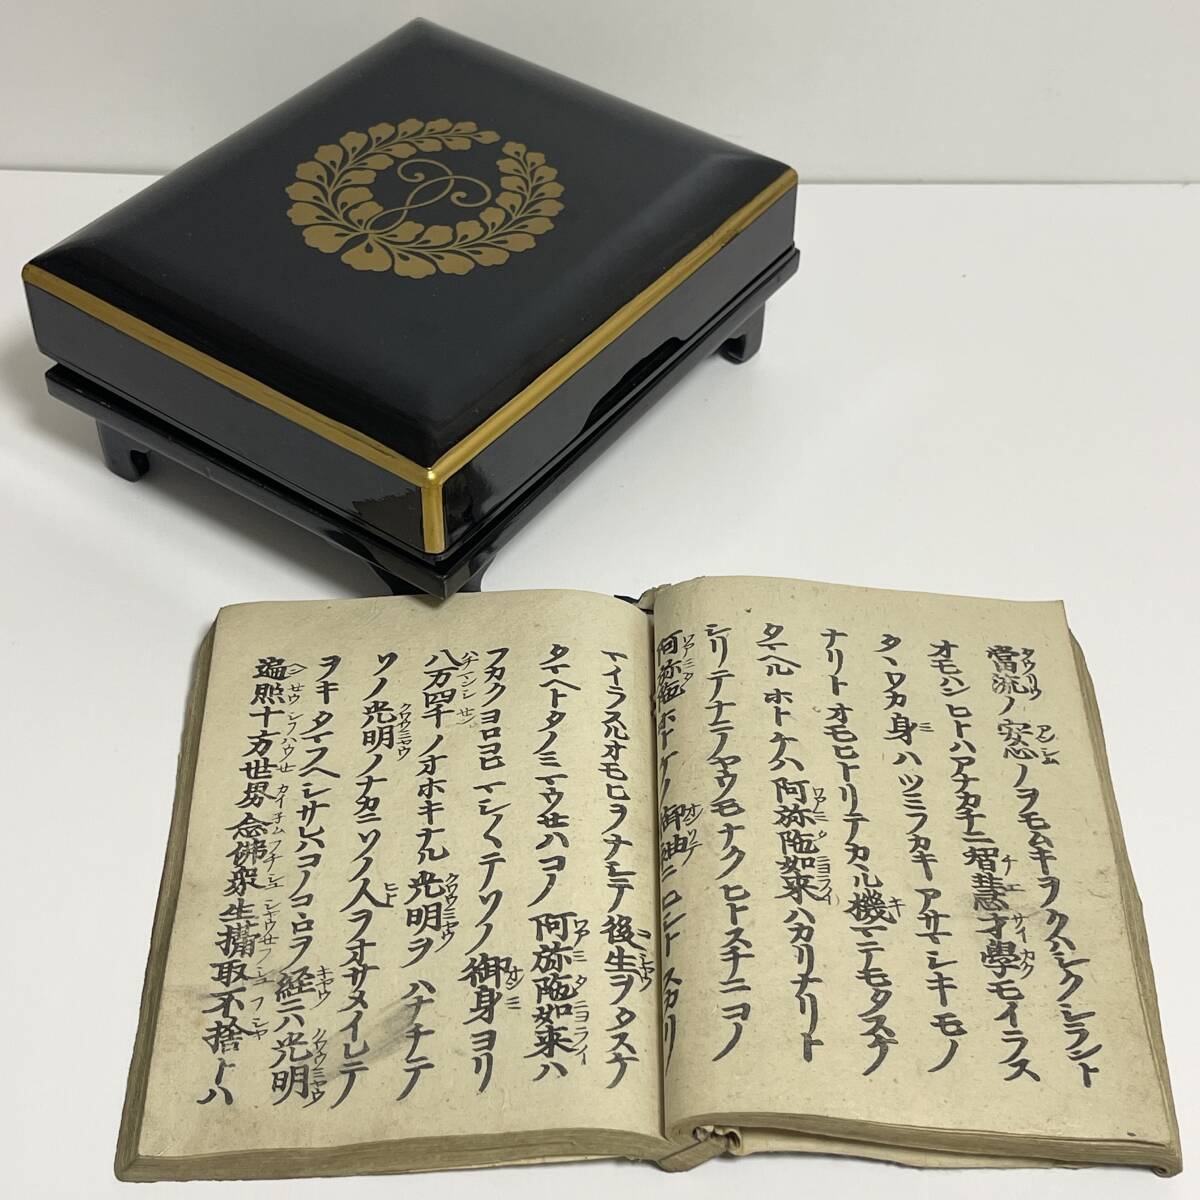 當流ノ安心ノヲモムキヲクハシクシラント
オモハンヒトハアナカチニ智慧才學モイラス
タヽワカ身ハツミフカキアサマシキモノ
ナリトオモヒトリテカヽル機マテモタスケ
タマヘルホトケハ阿弥陀如来ハカリナリト
シリテナニノヤウモナクヒトスチニコノ
阿弥陀ホトケノ御袖ニヒシトスカリ
マイラスルオモヒヲナシテ後生ヲタスケ
タマヘトタノミマウセハコノ阿弥陀如来ハ
フカクヨロコヒマシ〱テソノ御身ヨリ
八万四千ノオホキナル光明ヲハナチテ
ソノ光明ノナカニソノ人ヲオサメイレテ
ヲキタマフヘシサレハコノコヽロヲ経ニハ光明
遍照十方世界念佛衆生攝取不捨トハ